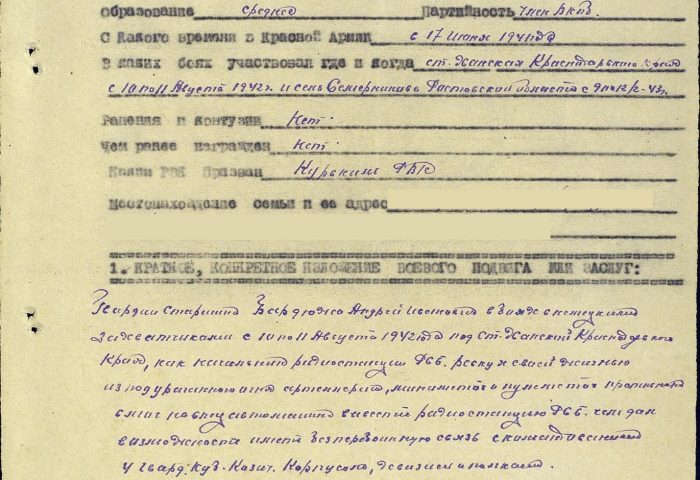 Образование среднее Партийность член ВКП.
С какого времени в Красной Армии с 17 июня 1941 года
В каких боях участвовал где и когда ст. Ханская Краснодарского Края
с 10 по 11 Августа 1942 г. и село Семерниково Ростовской области с 9 по 12/2-43 г.
Ранения и контузии Нет.
Чем ранее награжден нет.
Каким РВК Призван Курским РВК
Местонахождение семьи и ее адрес
1. КРАТКОЕ, КОНКРЕТНОЕ ИЗЛОЖЕНИЕ БОЕВОГО ПОДВИГА ИЛИ ЗАСЛУГ:
Гвардии Старшина Андрей Иванович в с немецкими
захватчиками с 10 по 11 Августа 1942 года под Ст. Ханской Краснодарского
Края, как начальник радиостанции РСБ. рискуя своей жизнью
из под ураганного огня артиллерии, минометов и пулеметов противника
автомашине вывести радиостанцию РСБ. чем дал
возможность иметь бесперебойную связь с командованием
4 Гвард. Куб. Казач. Корпусом, дивизией и полками.